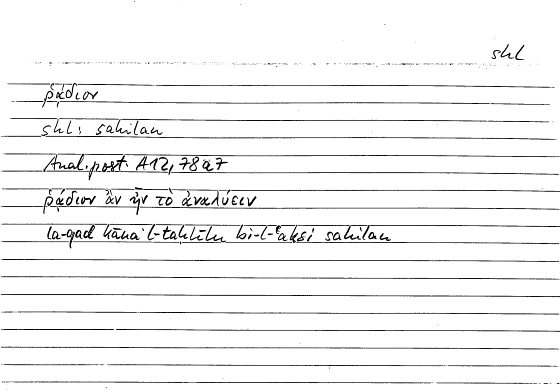 shl
ῥᾴδιον
shl: sahilan
Anal. post. A12, 78a7
ῥᾴδιον ἂν ἦν τὸ ἀναλύειν
la-qad kāna l-taḥlīlu bi-l-ʿaksi sahilan